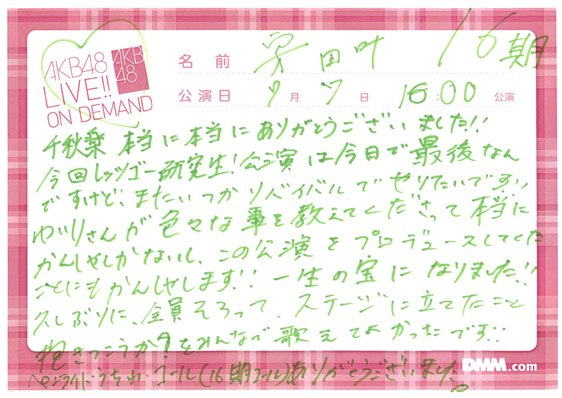 AKB48
LIVE!!
ON DEMAND
AKB
48
名前 安田叶 16期
公演日 7月7日 16:00 公演
千秋楽 本当に本当にありがとうございました!!
今回レッツゴー研究生!公演は今日で最後なん
ですけど、またいつかリバイバルでやりたいです!!
ゆいりさんが色々な事を教えてくださって本当に
かんしゃしかないし、この公演をプロデュースしてくだ
ことにもかんしゃします!! 一生の宝になりました!!
久しぶりに、全員そろって、ステージに立てたこと
抱きつこうか?をみんなで歌えてよかったです!!
ペンライト・うちわ・コール(16期コール)ありがとうございました。
DMM.com